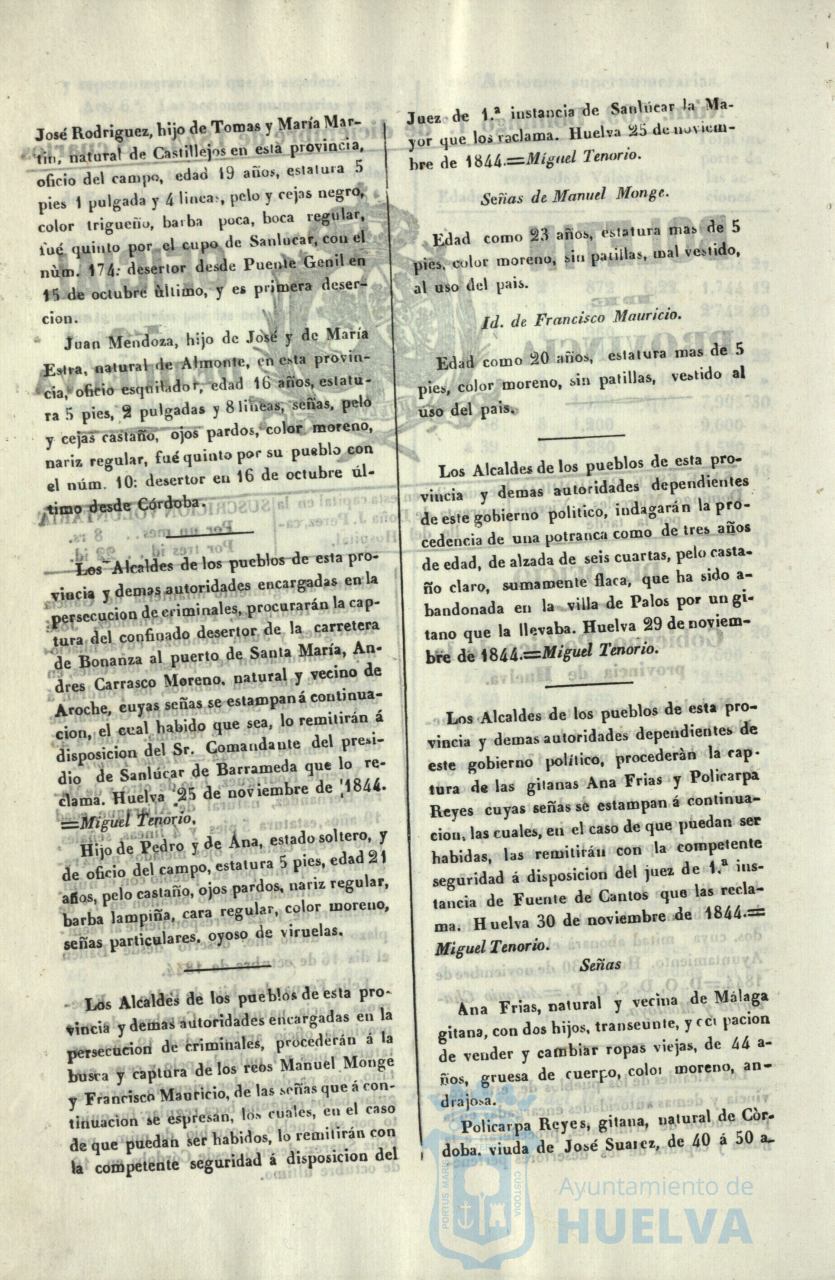 José Rodriguez, hijo de Tomas y María Mar-
tin, natural de Castillejos en esta provincia,
oficio del campo, edad 19 años, estatura 5
pies 1 pulgada y 4 lineas, pelo y cejas negro,
color trigueño, barba poca, boca regular,
fué quinto por el cupo de Sanlucar, con el
nùm. 174: desertor desde Puente Genil en
15 de octubre ùltimo, y es primera deser-
cion.
Juan Mendoza, hijo de José y de María
Estra, natural de Almonte, en esta provin-
cia, oficio esquilador, edad 16 años, estatu-
ra 5 pies, 2 pulgadas y 8 lineas, señas, pelo
y cejas castaño, ojos pardos, color moreno,
nariz regular, fué quinto por su pueblo con
el núm. 10: desertor en 16 de octubre úl-
timo desde Córdoba.
Los Alcaldes de los pueblos de esta pro-
vincia y demas autoridades encargadas en la
persecucion de criminales, procurarán la cap-
tura del confinado desertor de la carretera
de Bonanza al puerto de Santa María, An-
dres Carrasco Moreno, natural y vecino de
Aroche, cuyas señas se estampan á continua-
cion, el cual habido que sea, lo remitirán á
disposicion del Sr. Comandante del presi-
dio de Sanlúcar de Barrameda que lo re-
clama. Huelva 25 de noviembre de 1844.
=Miguel Tenorio.
Hijo de Pedro y de Ana, estado soltero, y
de oficio del campo, estatura 5 pies, edad 21
años, pelo castaño, ojos pardos, nariz regular,
barba lampiña, cara regular, color moreno,
señas particulares, oyoso de viruelas.
Los Alcaldes de los pueblos de esta pro-
vincia y demas autoridades encargadas en la
persecucion de criminales, procederán á la
busca y captura de los reos Manuel Monge
y Francisco Mauricio, de las señas que á con-
tinuacion se espresan, los cuales, en el caso
de que puedan ser habidos, lo remitirán con
la competente seguridad á disposicion del
Juez de 1.ª instancia de Sanlúcar la Ma-
yor que los raclama. Huelva 25 de noviem-
bre de 1844.=Miguel Tenorio.
Señas de Manuel Monge.
Edad como 23 años, estatura mas de 5
pies, color moreno, sin patillas, mal vestido,
al uso del pais.
Id. de Francisco Mauricio.
Edad como 20 años, estatura mas de 5
pies, color moreno, sin patillas, vestido al
uso del pais.
Los Alcaldes de los pueblos de esta pro-
vincia y demas autoridades dependientes
de este gobierno politico, indagarán la pro-
cedencia de una potranca como de tres años
de edad, de alzada de seis cuartas, pelo casta-
ño claro, sumamente flaca, que ha sido a-
bandonada en la villa de Palos por un gi-
tano que la llevaba. Huelva 29 de noviem-
bre de 1844.=Miguel Tenorio.
Los Alcaldes de los pueblos de esta pro-
vincia y demas autoridades dependientes de
este gobierno político, procederàn la cap-
tura de las gitanas Ana Frias y Policarpa
Reyes cuyas señas se estampan á continua-
cion, las cuales, en el caso de que puedan ser
habidas, las remitirán con la competente
seguridad á disposicion del juez de 1.ª ins-
tancia de Fuente de Cantos que las recla-
ma. Huelva 30 de noviembre de 1844.=
Miguel Tenorio.
Señas
Ana Frias, natural y vecina de Málaga
gitana, con dos hijos, transeunte, y pacion
de vender y cambiar ropas viejas, de 44 a-
ños, gruesa de cuerpo, color moreno, an-
drajosa.
Policarpa Reyes, gitana, natural de Còr-
doba, viuda de José Suarez, de 40 á 50 a-
PORTUS MARIS
CUSTODIA
Ayuntamiento de
HUELVA